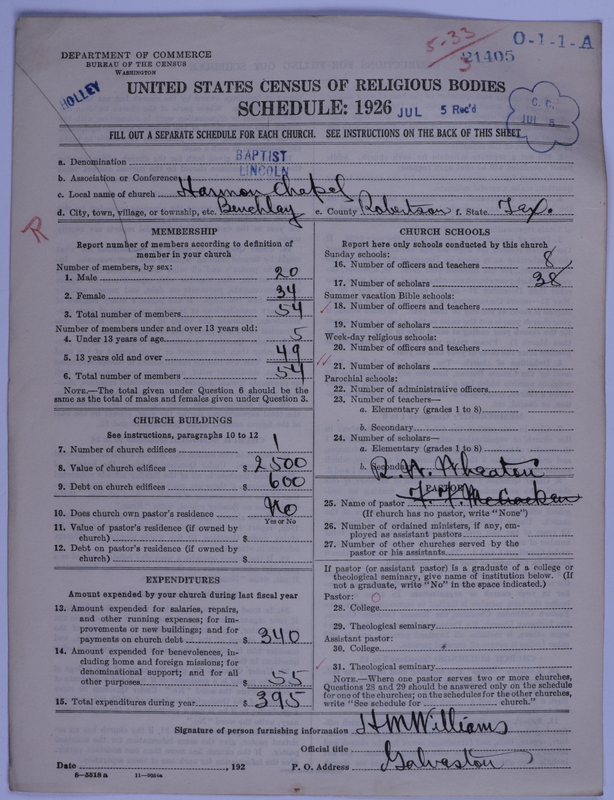 5-33
3
O-1-1-A
21405
DEPARTMENT OF COMMERCE
BUREAU OF THE CENSUS
WASHINGTON
HOLLEY
UNITED STATES CENSUS OF RELIGIOUS BODIES
SCHEDULE: 1926 JUL 5 Rec'd
C. C.
JUL 5
FILL OUT A SEPARATE SCHEDULE FOR EACH CHURCH. SEE INSTRUCTIONS ON THE BACK OF THIS SHEET
a. Denomination BAPTIST
b. Association or Conference LINCOLN
c. Local name of church Harmon Chapel
d. City, town, village, or township, etc. Benchley e. County Robertson f. State Tex.
R
MEMBERSHIP
Report number of members according to definition of member in your church
Number of members, by sex:
1. Male 20
2. Female 34
3. Total number of members 54
Number of members under and over 13 years old:
4. Under 13 years of age 5
5. 13 years old and over 49
6. Total number of members 54
NOTE.—The total given under Question 6 should be the
same as the total of males and females given under Question 3.
CHURCH BUILDINGS
See instructions, paragraphs 10 to 12
7. Number of church edifices 1
8. Value of church edifices $ 2500
9. Debt on church edifices $ 600
10. Does church own pastor's residence No
Yes or No
11. Value of pastor's residence (if owned by
church) $
12. Debt on pastor's residence (if owned by
church) $
EXPENDITURES
Amount expended by your church during last fiscal year
13. Amount expended for salaries, repairs,
and other running expenses; for im-
provements or new buildings; and for
payments on church debt $ 340
14. Amount expended for benevolences, in-
cluding home and foreign missions; for
denominational support; and for all
other purposes $ 55
15. Total expenditures during year $ 395
CHURCH SCHOOLS
Report here only schools conducted by this church
Sunday schools:
16. Number of officers and teachers 8
17. Number of scholars 38
Summer vacation Bible schools:
18. Number of officers and teachers
19. Number of scholars
Week-day religious schools:
20. Number of officers and teachers
21. Number of scholars
Parochial schools:
22. Number of administrative officers
23. Number of teachers—
a. Elementary (grades 1 to 8)
b. Secondary
24. Number of scholars—
a. Elementary (grades 1 to 8)
b. Secondary
R. W. Wheaton
PASTOR
25. Name of pastor F. F. McCracken
(If church has no pastor, write "None")
26. Number of ordained ministers, if any, em-
ployed as assistant pastors
27. Number of other churches served by the
pastor or his assistants
If pastor (or assistant pastor) is a graduate of a college or
theological seminary, give name of institution below. (If
not a graduate, write "No" in the space indicated.)
Pastor:
28. College
29. Theological seminary
Assistant pastor:
30. College
31. Theological seminary
NOTE.—Where one pastor serves two or more churches,
Questions 28 and 29 should be answered only on the schedule
for one of the churches; on the schedules for the other churches,
write "See schedule for church."
Signature of person furnishing information H M Williams
Official title
Date , 192 P. O. Address Galveston
8-5518 a 11-9164a